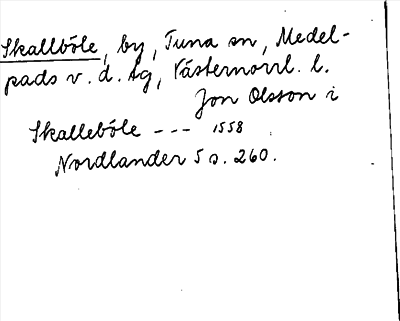 Skallböle, by, Tuna sn, Medel-
pads v. d. tg, Västernorrl. l.
Jon Olsson i
Skalleböle --- 1558
Nordlander 5 s. 260.